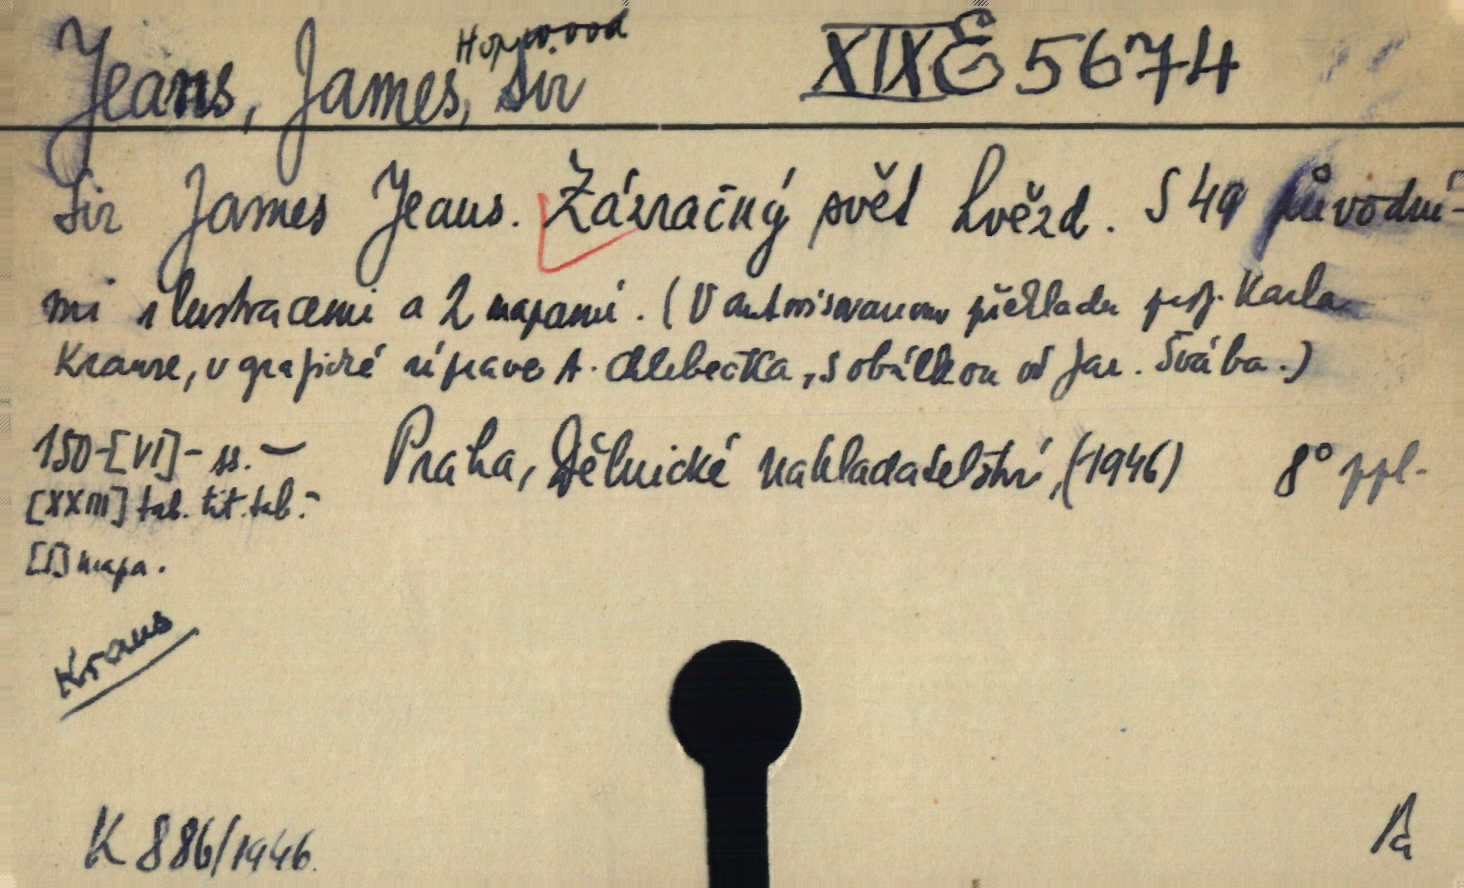 Jeans, James, Hopwood Sir XIX E 5674
Sir James Jeans. Zázračný svět hvězd. S 49 původní-
mi ilustracemi a 2 mapami. (V autorisovanem překladu prof. Karla
Krause, v grafické úpravě A. Chlebečka, s obálkou od Jar. Švába.)
150-[VI]- ss. —
Praha, Dělnické nakladatelství, (1946) 8° ppl.
[XXIII] tab. tit. tab. -
[I] mapa.
Kraus
K 886/1946.